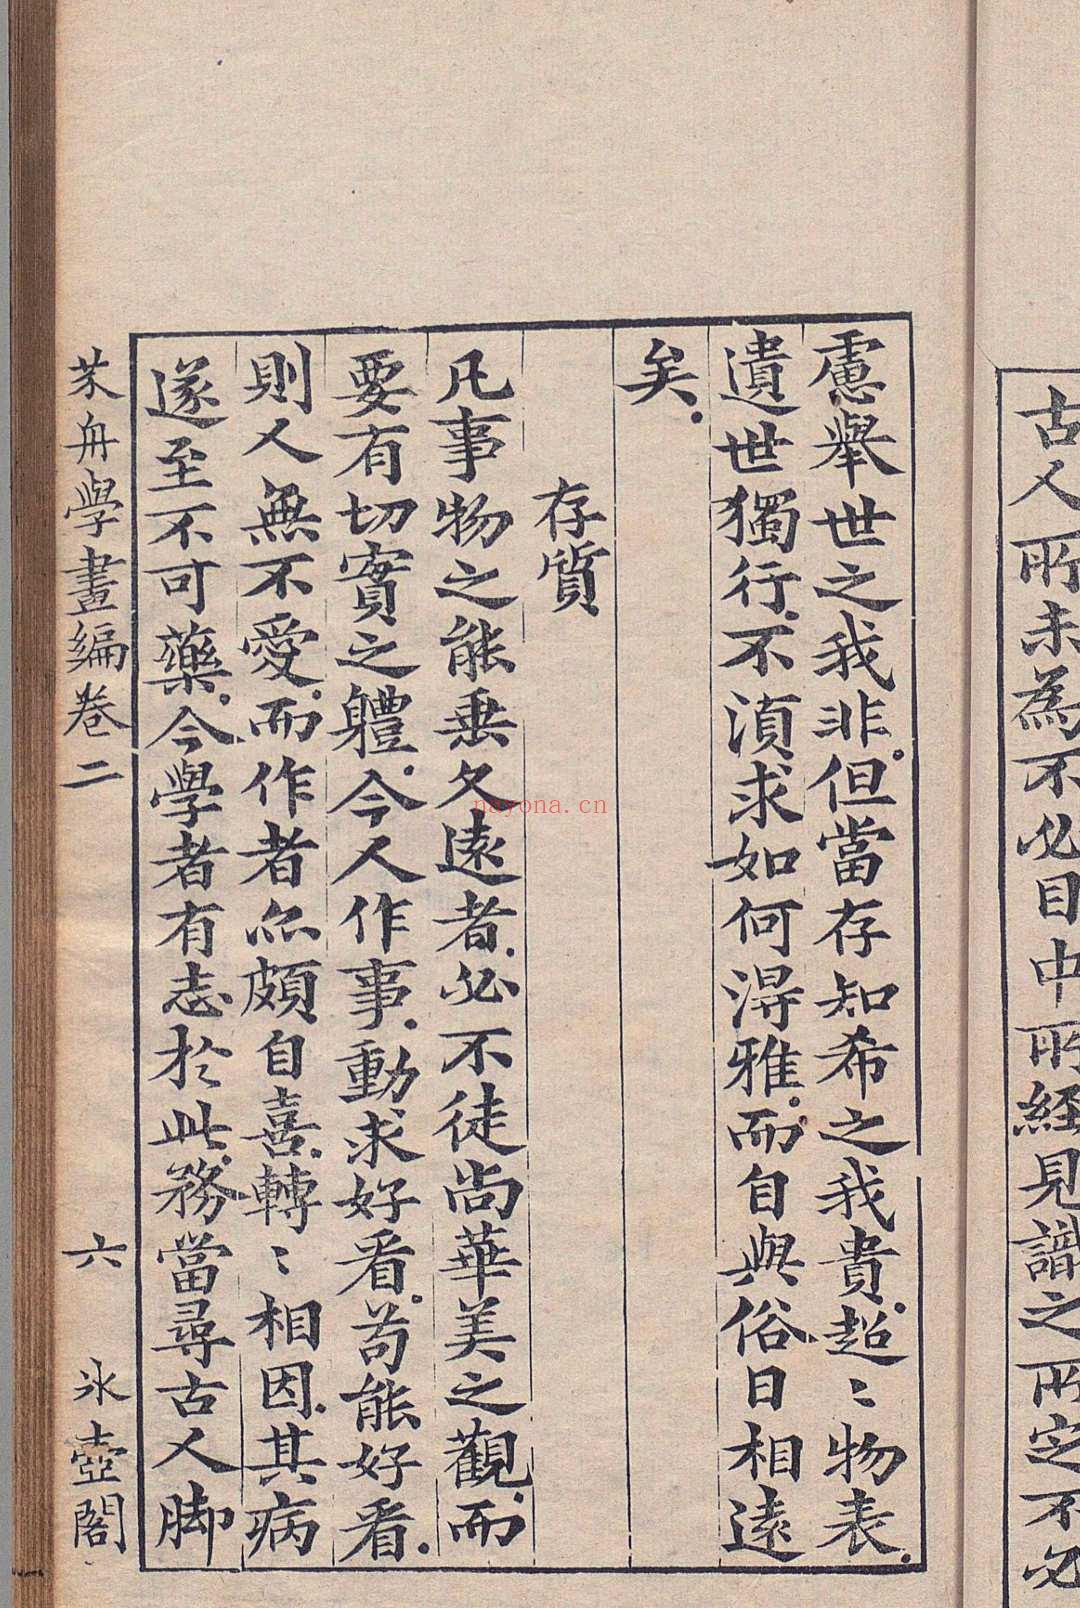 古人所未為不必目中所經見譜之所定不必
慮舉世之我非但當存知希之我貴超〻物表
遺世獨行不湏求如何淂雅而自與俗日相遠
矣
存質
凡事物之能垂久遠者必不徒尚華美之觀而
要有切實之軆今人作事動求好看苟能好看
則人無不愛而作者亦頗自喜轉〻相因其病
遂至不可藥今學者有志於此務當尋古人脚
芥舟學畫編卷二 六 冰壺閣
nayona.cn